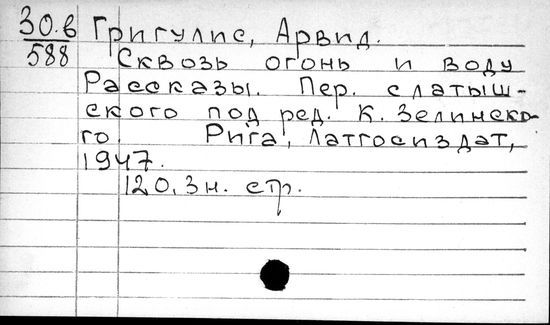 30.в Григулис, Арвид.
588 Сквозь огонь и воду
Рассказы. Пер. с латыш-
ского под ред. К. Зелинско-
го. Рига, Латгосиздат,
1947.
120, 3 н. стр.